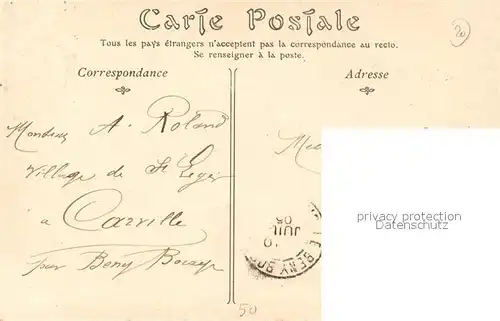 Carte Postale
Tous les pays étrangers n'acceptent pas la correspondance au recto.
Se renseigner à la poste.
Correspondance
Adresse
20
Monsieur A. Roland
Village de St Leger
a Carville
par Beny Bocage
JUIL
05
50
privacy protection
Datenschutz